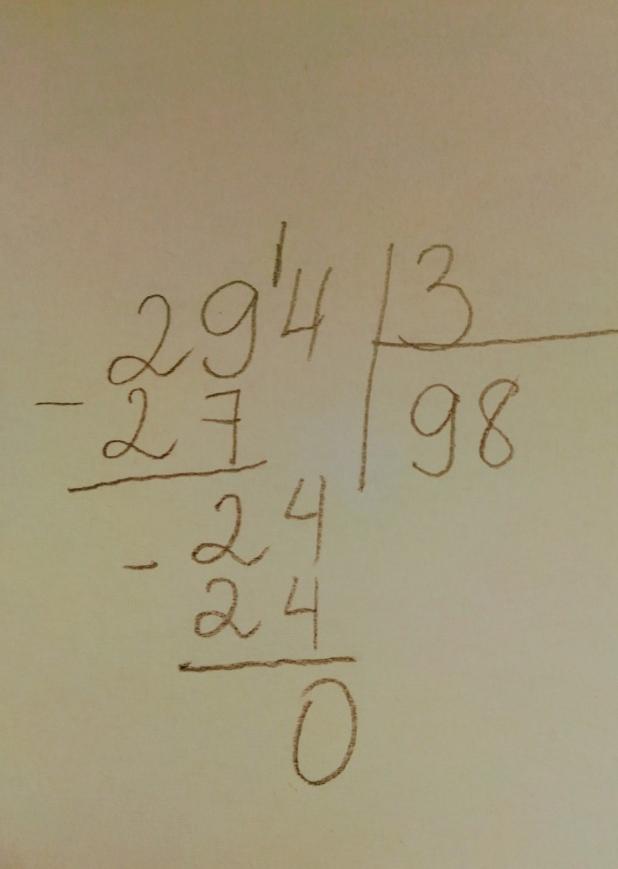 29'4 3
- 27 98
- 24
24
0